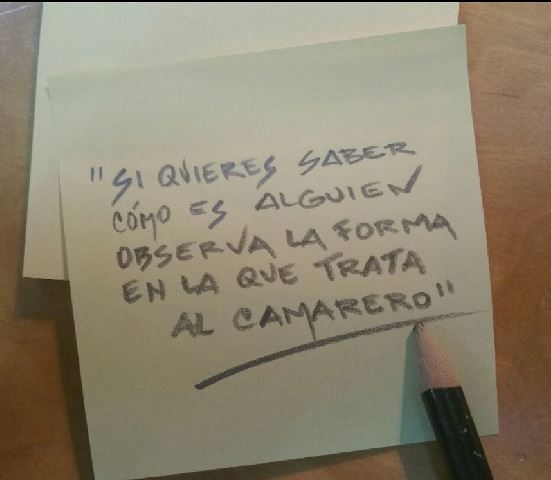 "SI QUIERES SABER
CÓMO ES ALGUIEN
OBSERVA LA FORMA
EN LA QUE TRATA
AL CAMARERO"